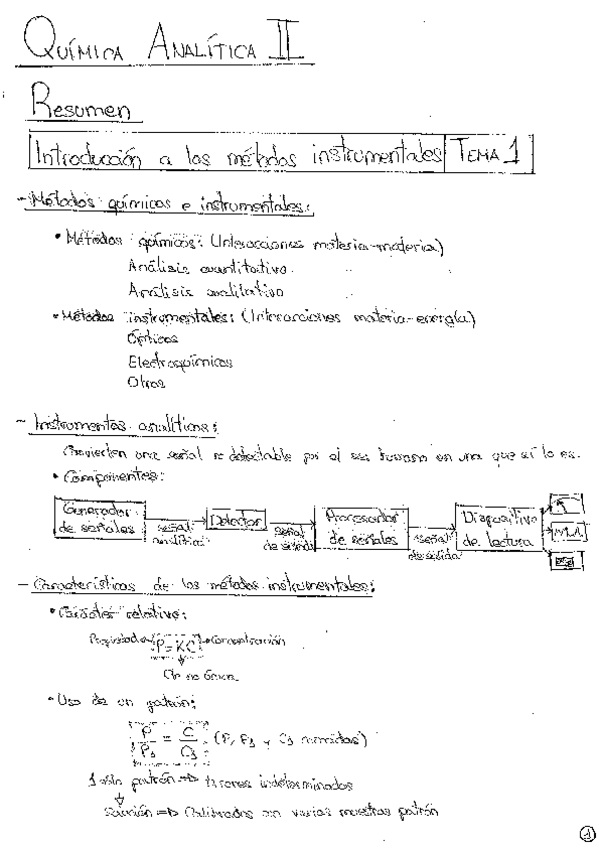 QUÍMICA ANALÍTICA II
Resumen
Introducción a los métodos instrumentales TEMA 1
- Métodos químicos e instrumentales:
• Métodos químicos: (Interacciones materia-materia)
Análisis cuantitativo
Análisis cualitativo
• Métodos instrumentales: (Interacciones materia-energía)
Ópticos
Electroquímicos
Otros
- Instrumentos analíticos:
Convierten una señal no detectable por el ser humano en una que sí lo es.
• Componentes:
Generador de señales
señal analítica
Detector
señal de salida
Procesador de señales
señal de salida
Dispositivo de lectura
- Características de los métodos instrumentales:
• Carácter relativo:
Propiedad P = KC Concentración
Cte no única
• Uso de un patrón:
P/P₃ = C/C₃ (P, P₃ y C₃ conocidas)
1 sólo patrón => Errores indeterminados
Solución => Calibrados con varias muestras patrón
1